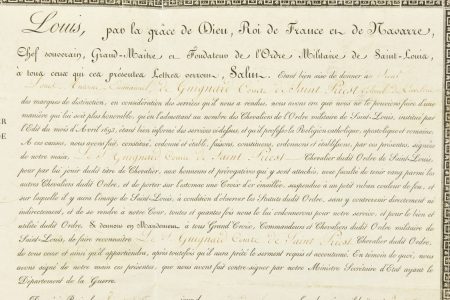 Louis, par la grâce de Dieu, Roi de France et de Navarre,
Chef souverain, Grand-Maître et Fondateur de l'Ordre Militaire de Saint-Louis,
à tous ceux qui ces présentes Lettres verront, Salut. Étant bien aise de donner au
Emmanuel de Guignard Comte de Saint Priest
des marques de distinction, en considération des services qu'il nous a rendus, nous avons cru que nous ne le pouvions faire d'une
manière qui lui soit plus honorable, qu'en l'admettant au nombre des Chevaliers de l'Ordre militaire de Saint-Louis, institué par
l'Édit du mois d'Avril 1693, étant bien informés des services ci-dessus, et qu'il professe la Religion catholique, apostolique et romaine.
À ces causes, nous avons fait, constitué, ordonné et établi, faisons, constituons, ordonnons et établissons, par ces présentes, signées
de notre main, Le S. Guignard Comte de Saint Priest Chevalier dudit Ordre de Saint-Louis,
pour par lui jouir dudit titre de Chevalier, aux honneurs et prérogatives qui y sont attachés, avec faculté de tenir rang parmi les
autres Chevaliers dudit Ordre, et de porter sur l'estomac une Croix d'or émaillée, suspendue à un petit ruban couleur de feu, et
sur laquelle il y aura l'image de Saint-Louis, à condition d'observer les Statuts dudit Ordre, sans y contrevenir directement ni
indirectement, et de se rendre à notre Cour, toutes et quantes fois nous le lui ordonnerons pour notre service, et pour le bien et
utilité dudit Ordre. Si donnons en Mandement à tous Grand'Croix, Commandeurs et Chevaliers dudit Ordre militaire de
Saint-Louis, de faire reconnaître Le S. Guignard Comte de Saint Priest Chevalier dudit Ordre,
de tous ceux et ainsi qu'il appartiendra, après toutefois qu'il aura prêté le serment requis et accoutumé. En témoin de quoi, nous
avons signé de notre main ces présentes, que nous avons fait contre-signer par notre Ministre Secrétaire d'État ayant le
Département de la Guerre.